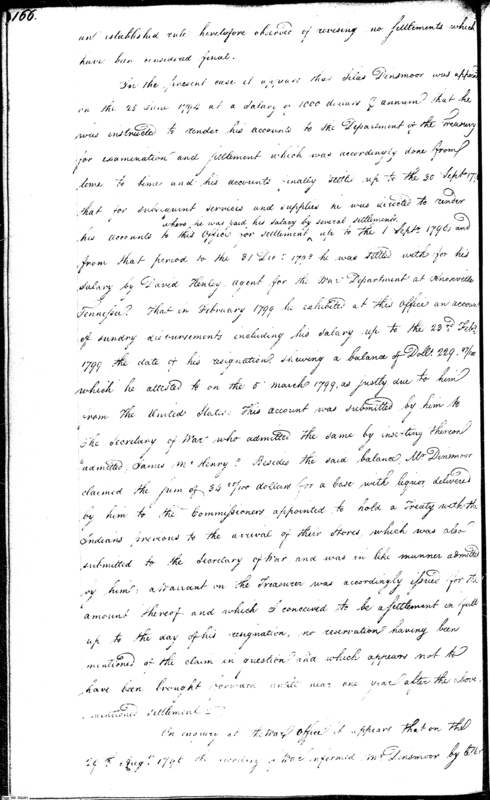 166.
an established rule heretofore observed of revising no settlements which
have been considered final.
In the present case it appears that Silas Densmoor was appointed
on the 25 June 1794 at a salary of 1000 dollars annum that he
was instructed to render his accounts to the Department of the Treasury
for examination and settlement which was accordingly done from
time to time and his accounts finally settled up to the 30 Septr
that for subsequent services and supplies he was directed to render
where he was paid his salary by several settlements
his accounts to this Office for settlement up to the 1 Septr 1796, and
from that period to the 31 Decr he was settled with for his
salary by David Henley agent for the War Department at Knoxville
Tennessee. That in February 1799 he exhibited at this Office an account
of sundry disbursements including his salary up to the 23rd Feby
1799 the date of his resignation, shewing a balance of Dolls 229.
which he attested to on the 5 march 1799, as justly due to him
from the United States. This account was submitted by him to
the Secretary of War who admitted the same by inserting thereon
"admitted, James McHenry". Besides the said balance Mr Dinsmoor
claimed the sum of 34 dollars for a case with liquor delivered
by him to the Commissioners appointed to hold a Treaty with the
Indians previous to the arrival of their stores, which was also
submitted to the Secretary of War and was in like manner admitted
by him; a Warrant on the Treasurer was accordingly issued for the
amount thereof and which I conceived to be a settlement in full
up to the day of his resignation, no reservation having been
mentioned of the claim in question and which appears not to
have been brought forward until near one year after the above
mentioned settlement
On enquiry at the War Office it appears that on the
29th Augt 1796 the Secretary of War informed Mr Dinsmoor by letter